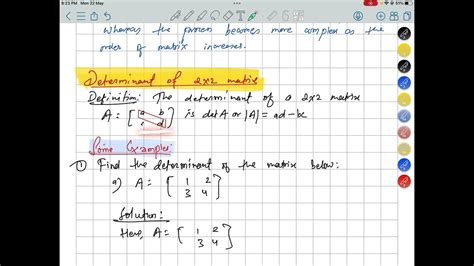 8:23 PM Mon 22 May
51%
Whereas the process becomes more complex as the
order of matrix increases.
Determinant of 2x2 matrix
Definition: The determinant of a 2x2 matrix
A = [a b
c d] is det A or |A| = ad - bc
Some Examples:
① Find the determinant of the matrix below:
a) A = [1 2
3 4]
Solution:
Here, A = [1 2
3 4]